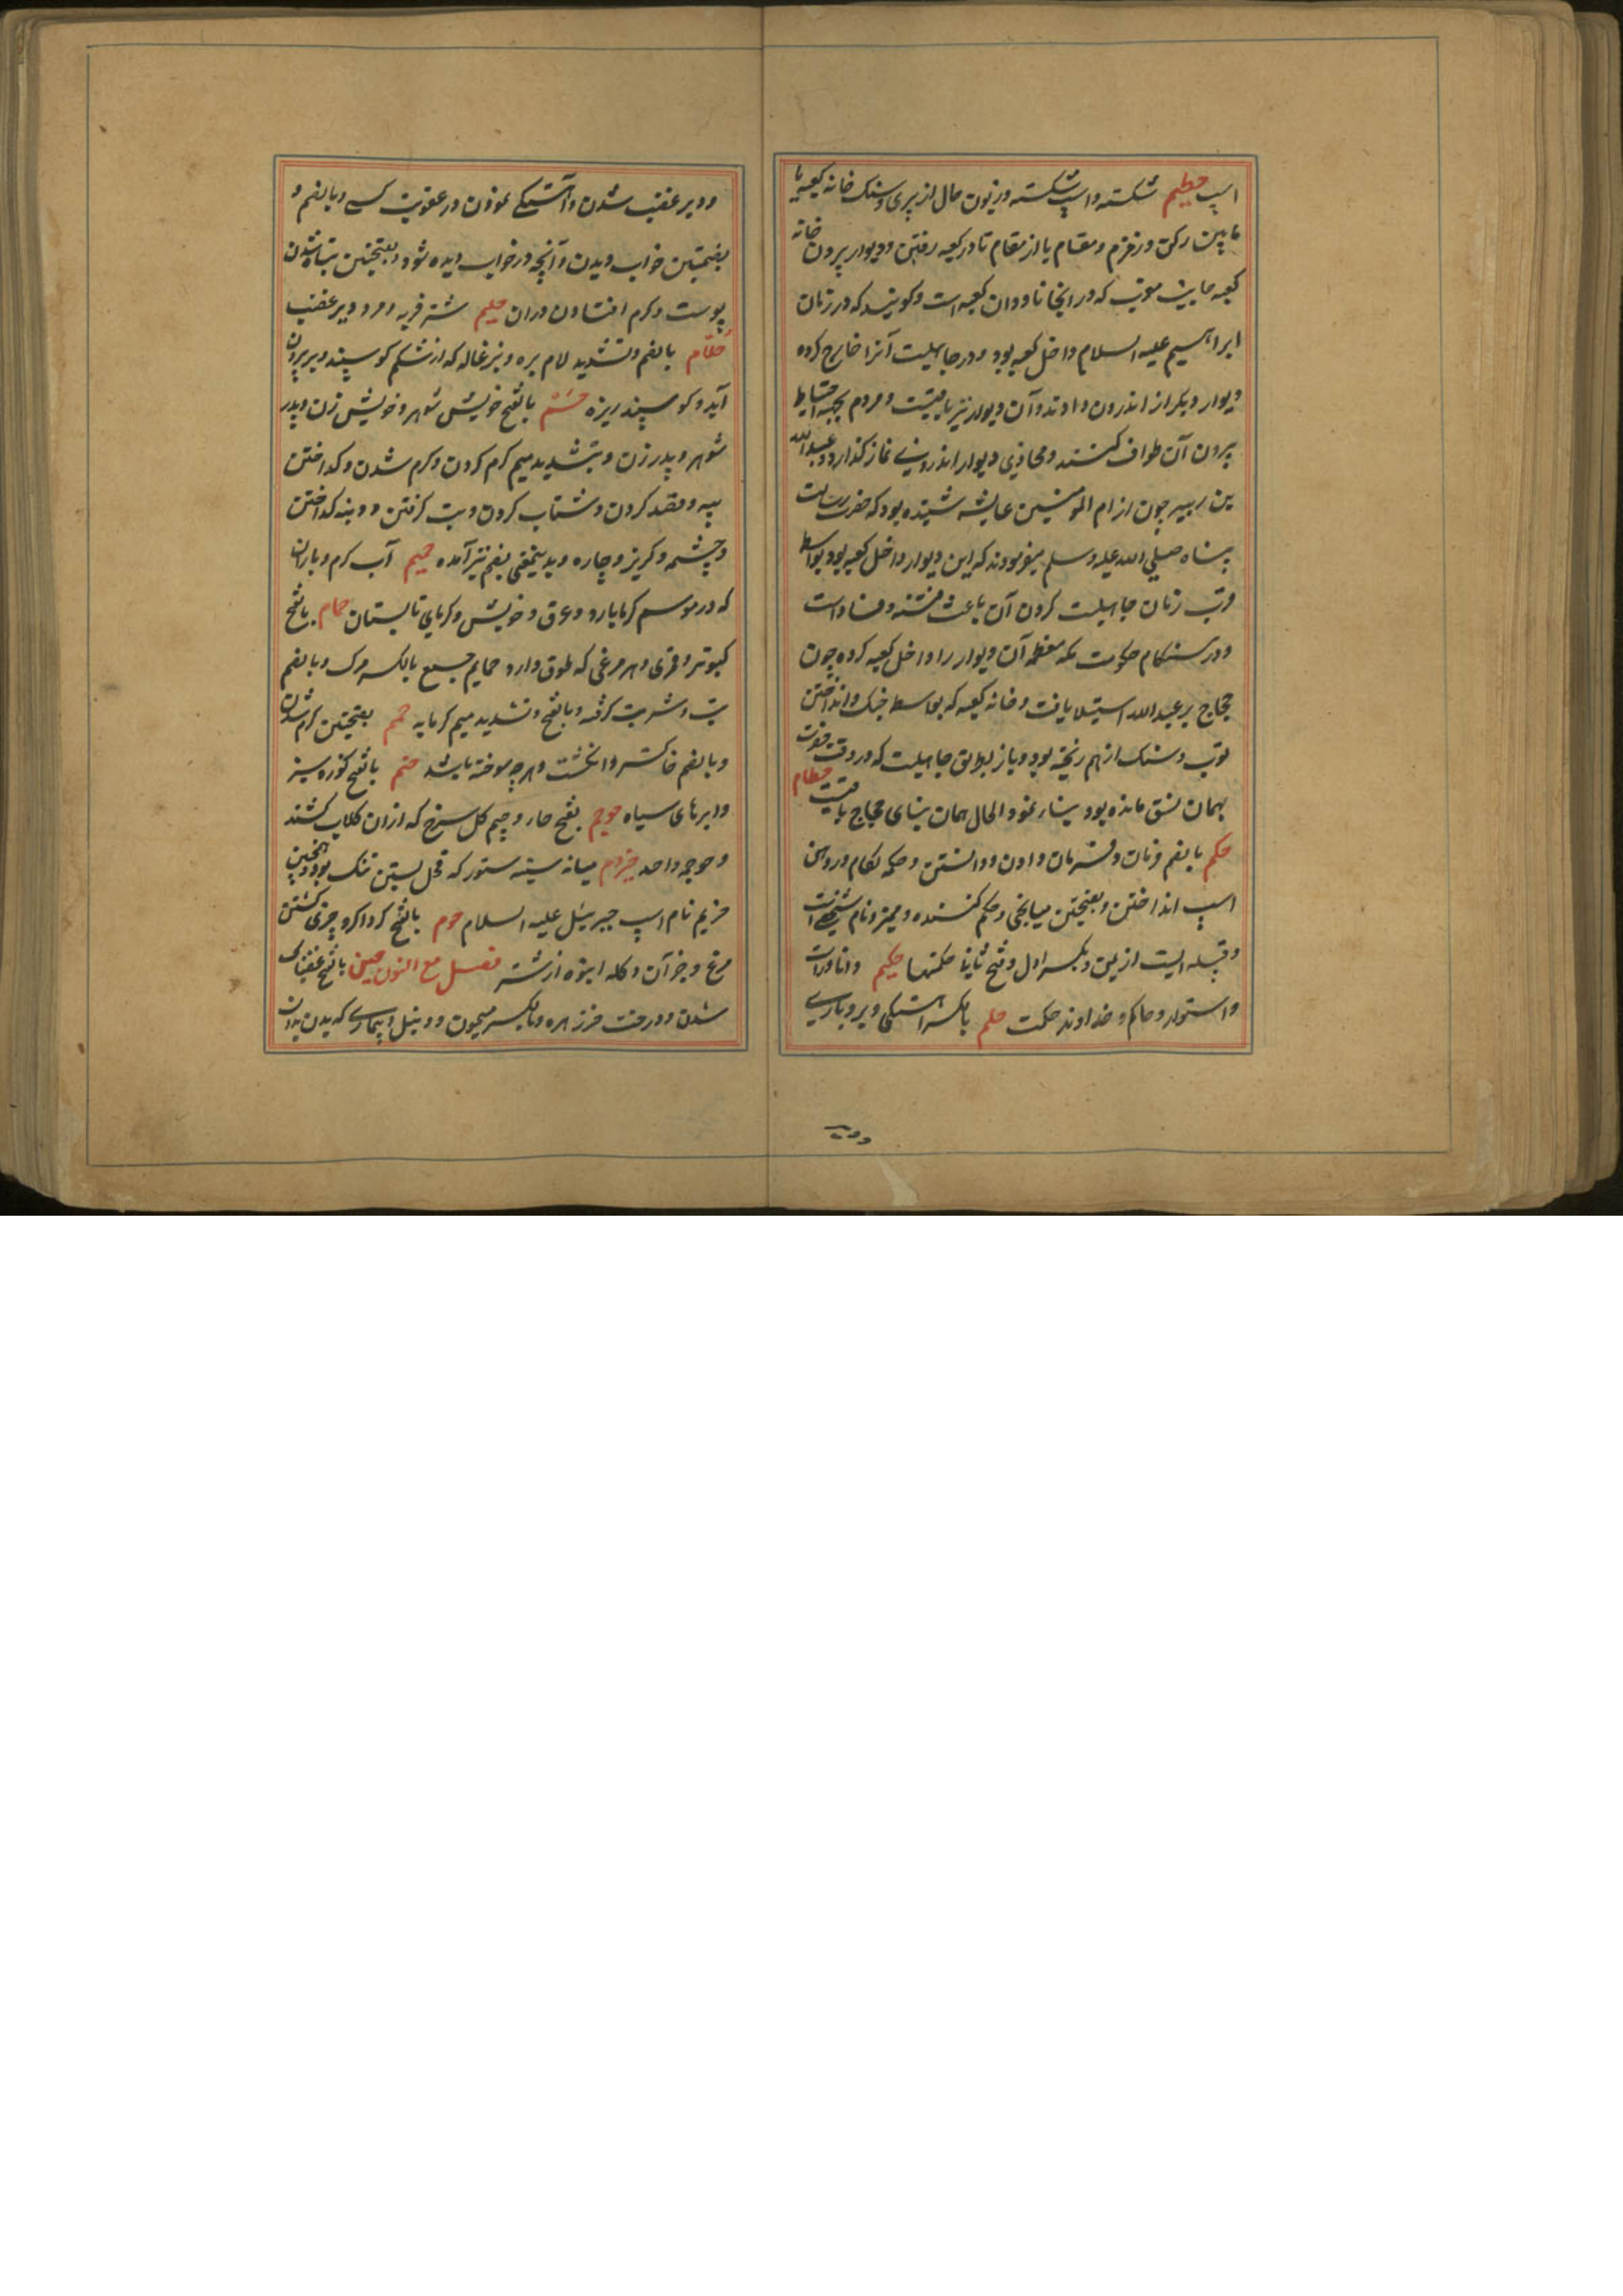 اسپ حطیم شکسته و اسپ شکسته و زبون حال از پیری و سنک خانه کعبه یا
مابین رکن و زمزم و مقام یا از مقام تا در کعبه رفتن و دیوار بیرون خانه
کعبه جانب مغرب که در انجا ناودان کعبه است و کویند که در زمان
ابراهیم علیه السلام داخل کعبه بود و در جاهلیت آنرا خارج کرده
دیوار دیکر از اندرون دادند و آن دیوار نیز باقیست و مردم بجهة احتیاط
بیرون آن طواف کنند و محاذی دیوار اندرونی نماز کذارد و عبدالله
بن زبیر چون از ام المومنین عایشه شنیده بود که حضرت رسالت
پناه صلی الله علیه وسلم میفرمودند که این دیوار داخل کعبه بود بواسطه
قرب زمان جاهلیت کردن آن باعث فتنه و فساد است
و در هنکام حکومت مکه معظمه آن دیوار را داخل کعبه کرده چون
حجاج بر عبدالله استیلا یافت و خانه کعبه که بواسطه جنک و انداختن
توپ و سنک از هم ریخته بود و باز بطریق جاهلیت که در وقت قوت
بهمان نسق مانده بود بنا نمود و الحال همان بنای حجاج باقیست حطام
حکم بالضم فرمان و فرمان دادن و دانستن و حکمه لکام در دهن
اسپ انداختن و بفتحتین میانجی و حکم کننده و ممیز و نام شخصی است
و قبیله ایست از یمن و بکسر اول و فتح ثانی حکمتها حکیم دانا و راست
و استوار و حاکم و خداوند حکمت حلم بالکسر آهستکی و بردباری
و دیر
و دیر غضب شدن و آهستکی نمودن در عقوبت کسی و بالضم و
بضمتین خواب دیدن و آنچه در خواب دیده شود و بفتحتین تباه شدن
پوست و کرم افتادن دران حلیم شتر فربه و مرد دیر غضب
حلام بالضم و تشدید لام بره و بزغاله که از شکم کوسپند و بز بیرون
آید و کوسپند ریزه حم بالفتح خویش شوهر و خویش زن و پدر
شوهر و پدر زن و بتشدید میم کرم کردن و کرم شدن و کداختن
پیه و قصد کردن و شتاب کردن و تب کرفتن و دنبه کداخته
و چشمه و کریز و چاره و بدینمعنی بضم نیز آمده حمیم آب کرم و باران
که در موسم کرما بارد و عرق و خویش و کرمای تابستان حمام بالفتح
کبوتر و قمری و هر مرغی که طوق دارد حمایم جمع بالکسر مرک و بالضم
تب و شتر تب کرفته و بالفتح و تشدید میم کرمابه حمم بفتحتین کرم شدن
و بالضم خاکستر و انکشت و هر چه سوخته باشد حنتم بالفتح کوزه سبز
و ابرهای سیاه حوجم بفتح حا و جیم کل سرخ که ازان کلاب کشند
و حوجمه واحد حیزم میانه سینه ستور که محل بستن تنک بود و همچنین
حزیم نام اسپ جبرئیل علیه السلام حوم بالفتح کرداکرد چیزی کشتن
مرغ و جز آن و کله انبوه از شتر فصل مع النون حبن بالفتح غضبناک
شدن و درخت خرزهره و بالکسر میمون و دنبل و بیماری که بدن بدان